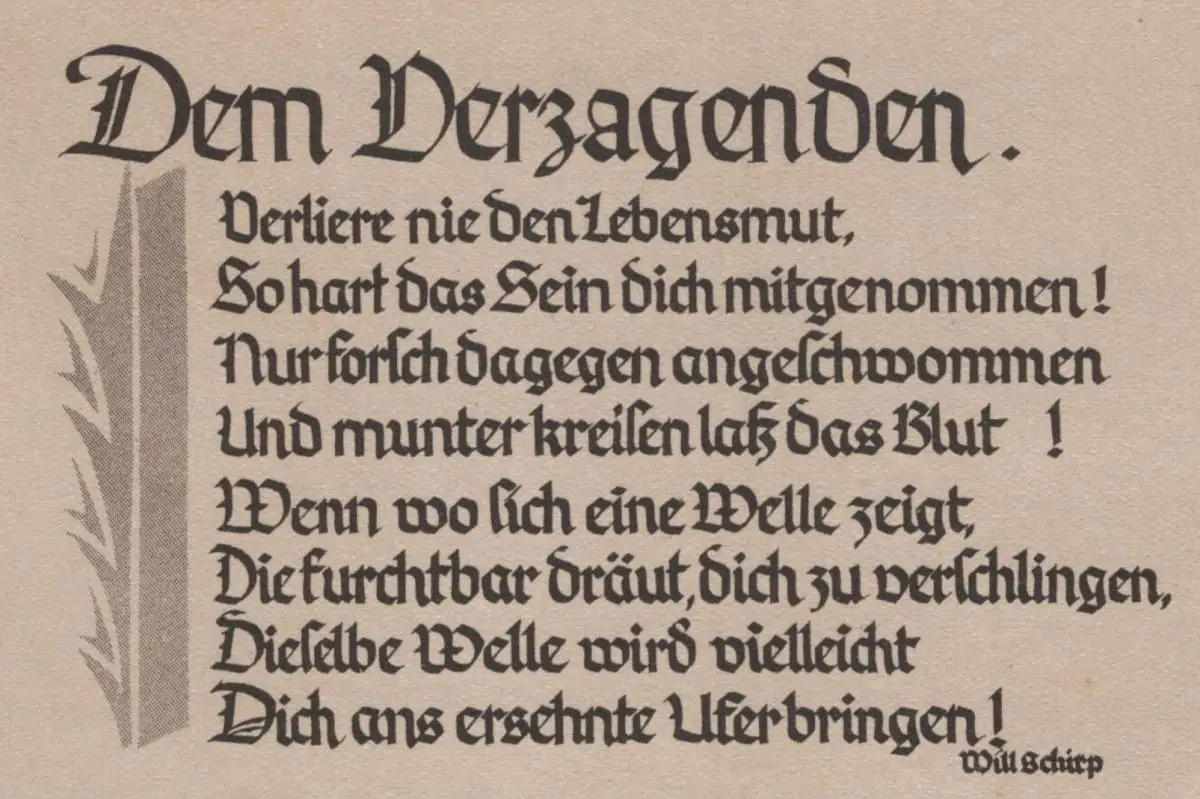 Dem Verzagenden.
Verliere nie den Lebensmut,
So hart das Sein dich mitgenommen!
Nur forsch dagegen angeschwommen
Und munter kreisen laß das Blut !
Wenn wo sich eine Welle zeigt,
Die furchtbar dräut, dich zu verschlingen,
Dieselbe Welle wird vielleicht
Dich ans ersehnte Ufer bringen!
Will Schirp